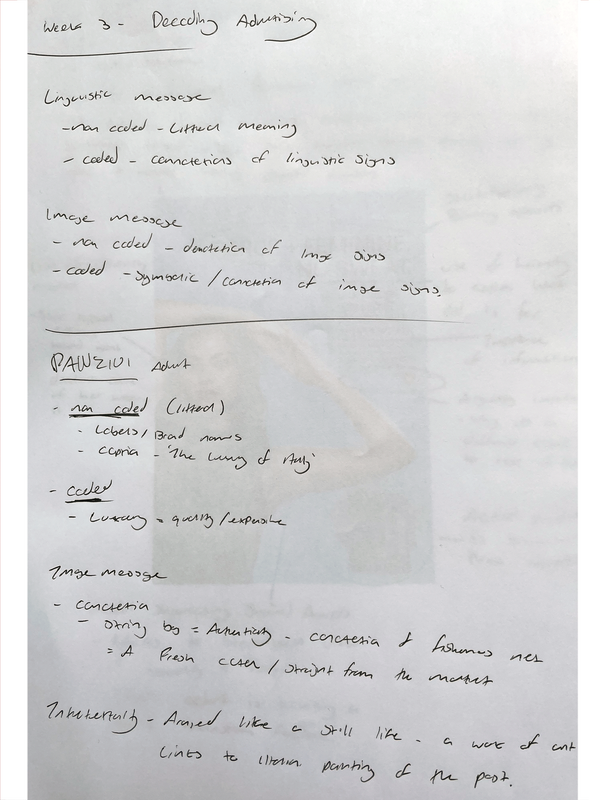 Week 3 - Decoding Advertising
Linguistic message
- non coded - Litteral meaning
- coded - connotations of linguistic signs
Image message
- non coded - denotation of Image signs
- coded - symbolic / connotation of image signs.
PANZINI Advert
- non coded (litteral)
- Labels / Brand names
- caption - 'The luxury of Italy'
- coded
- Luxuary = quality / expensive
Image message
- connotation
- String bag = Authenticity - connotation of fishermans net
= A fresh catch / straight from the market
Intertextuality - Arranged like a still life - a work of art
Links to literain painting of the past.